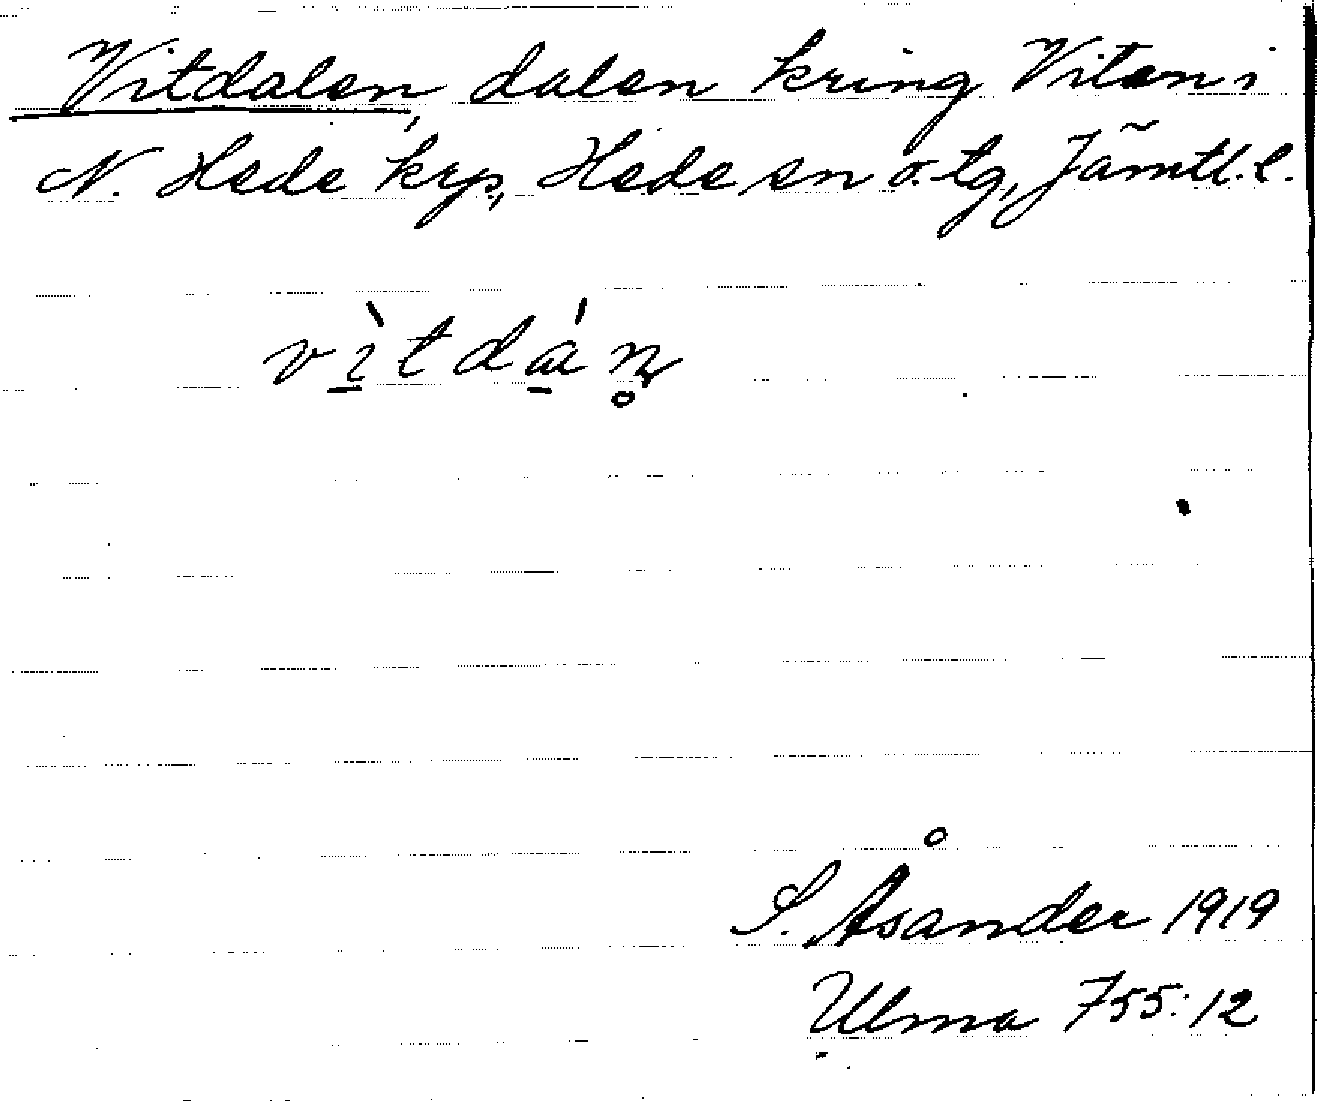 Vitdalen, dalen kring Viten i
N. Hede krp, Hede sn o. tg, Jämtl. l.
vı̲̀tdá̲n̥
S. Åsander 1919
Ulma 755:12